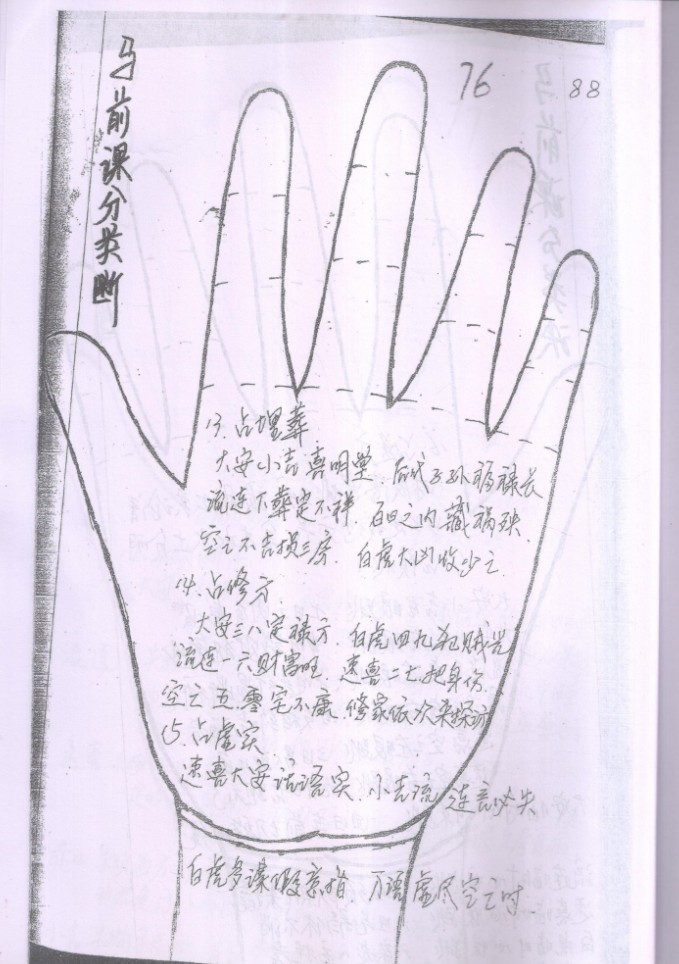 马前课分类断
76
88
13.占埋葬
大安小吉喜明堂.后代子孙福禄长
流连下葬定不祥.百日之内藏祸殃.
空亡不吉损三房.白虎大凶收少亡.
14.占修方
大安三八定禄方.白虎四九犯贼光
流连一六财富旺.速喜二七把身伤.
空亡五.零宅不康.修家依次来探访
15.占虚实
速喜大安话语实.小吉流连言必失
白虎多谋假 万语虚尽空亡时